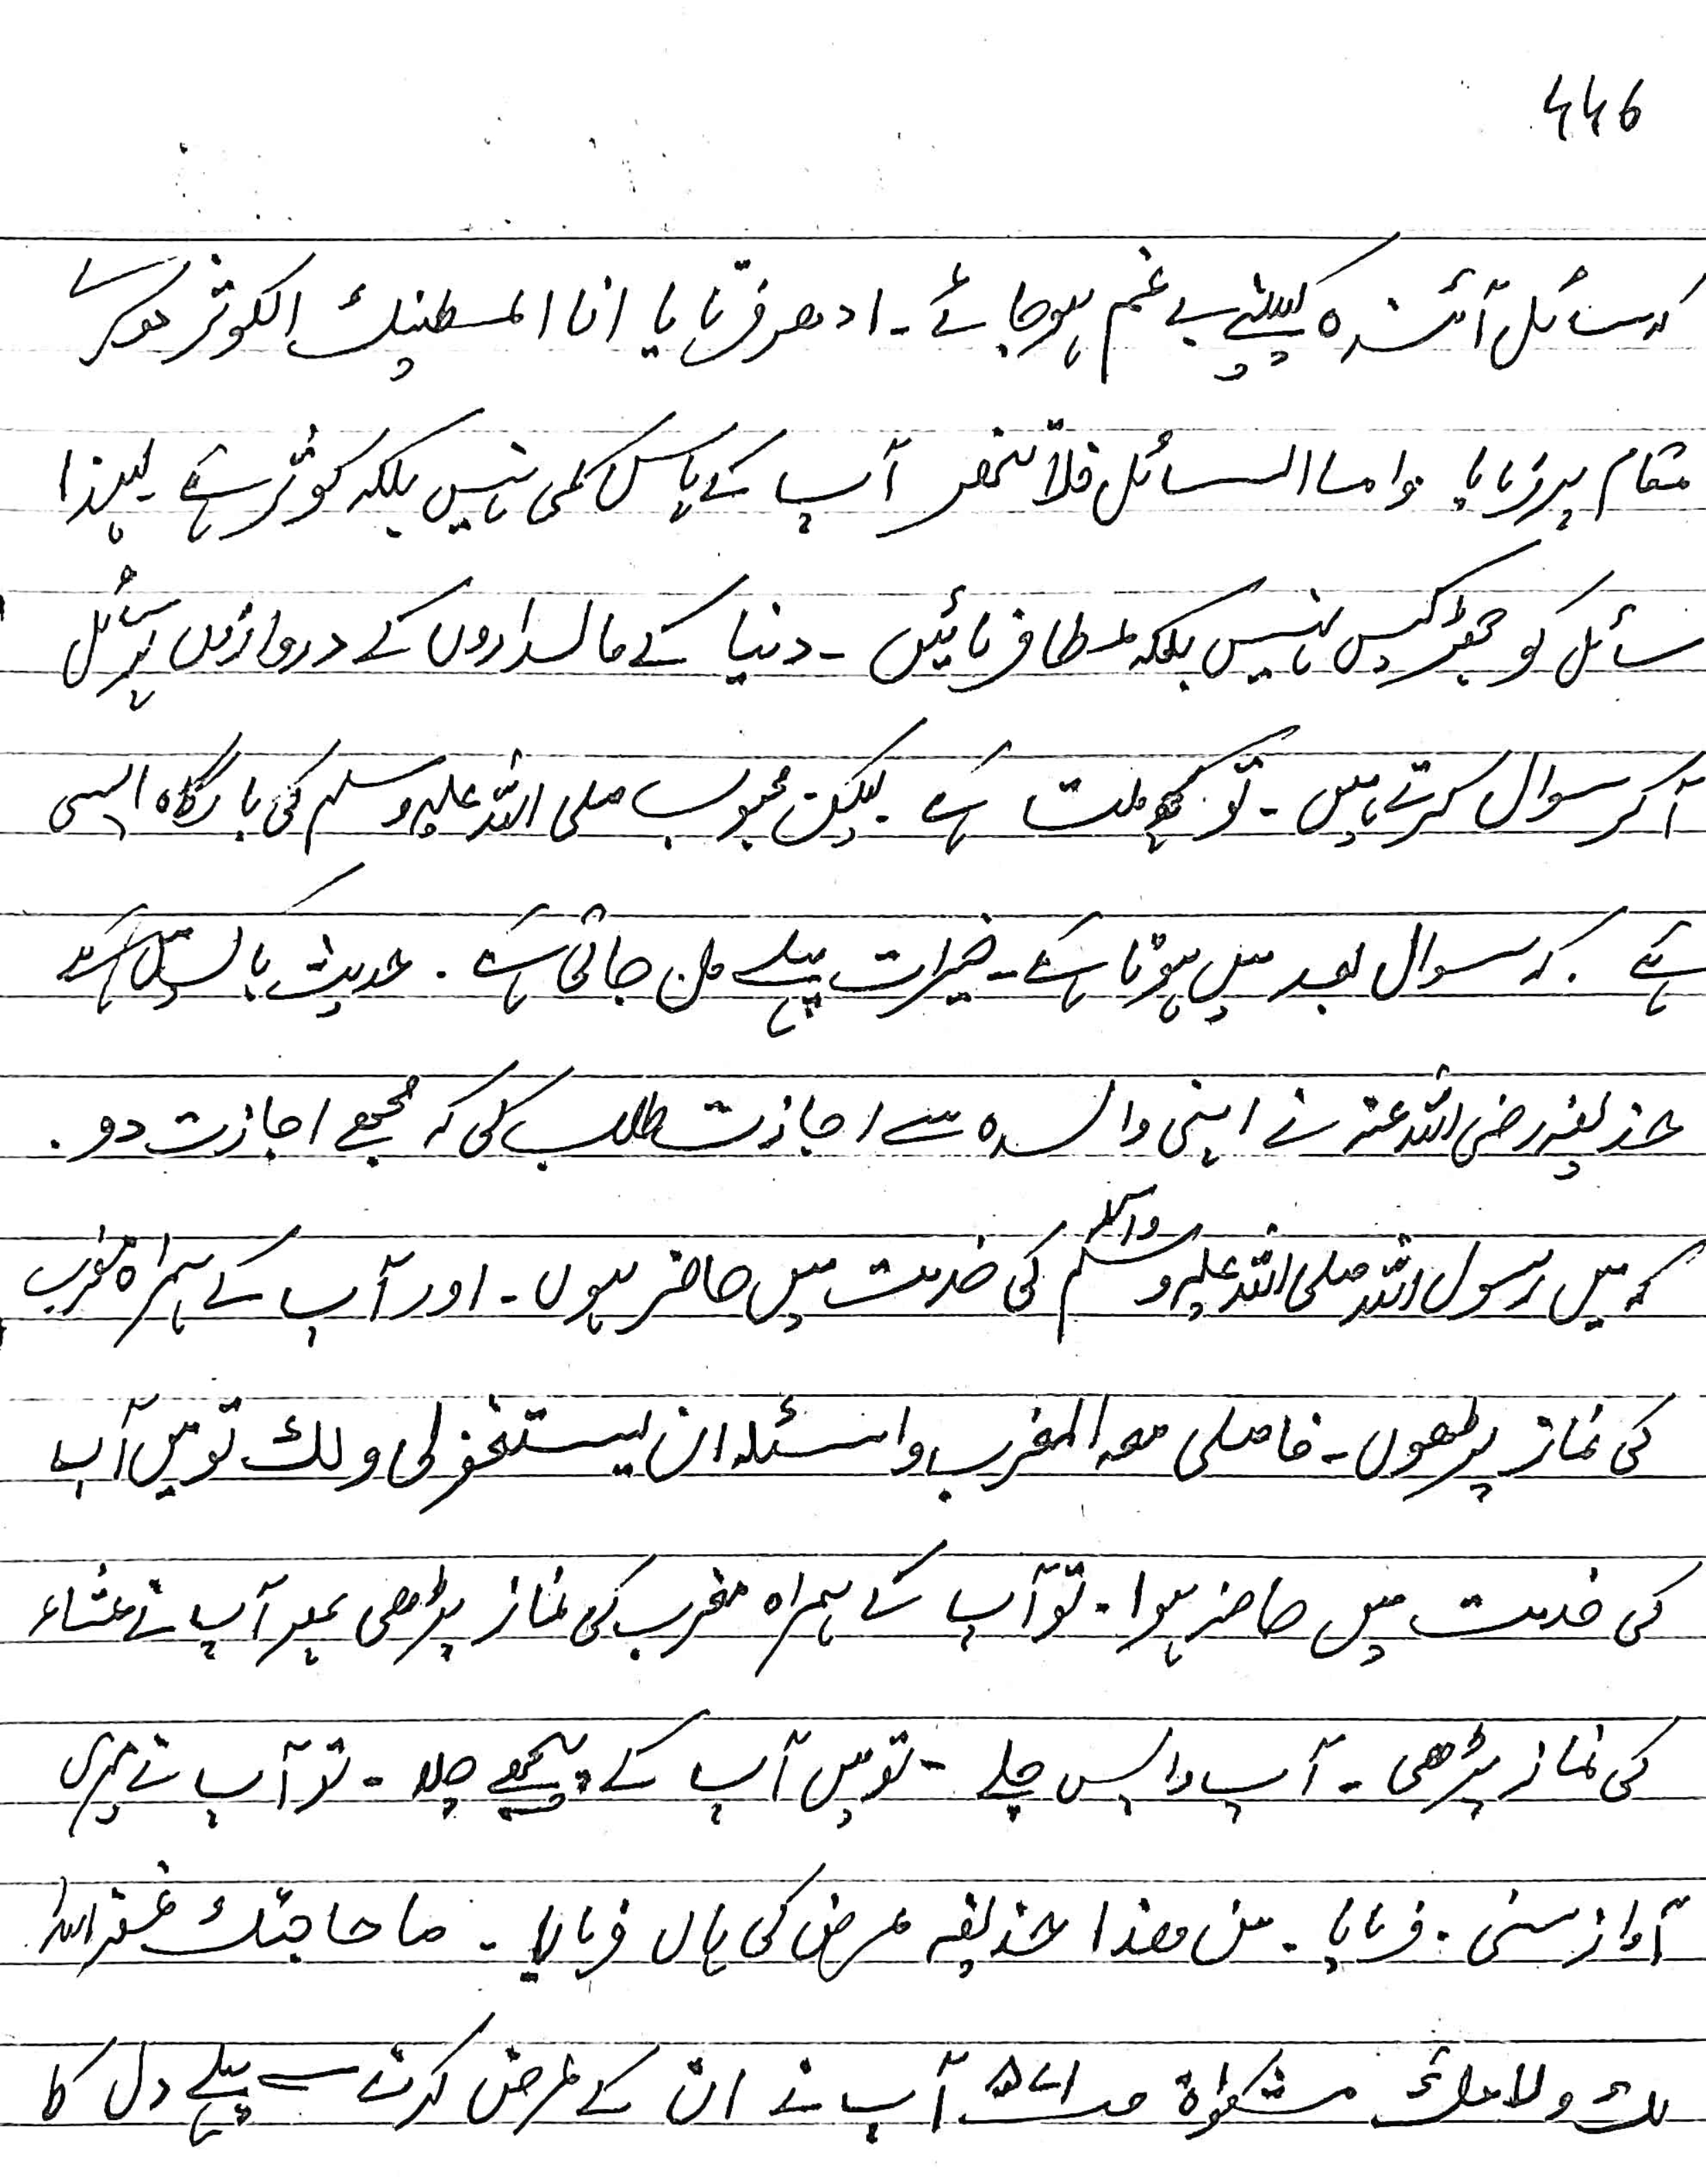 ۴۴۶
کہ سائل آئندہ کیلئے بے غم ہوجائے۔ ادھر فرمایا انا اعطینٰک الکوثر دوسرے
مقام پر فرمایا واما السائل فلا تنھر آپ کے پاس کمی نہیں بلکہ کوثر ہے۔ لہذا
سائل کو جھڑکیں نہیں بلکہ عطا فرمائیں ۔ دنیا کے مالداروں کے دروازوں پر سائل
آکر سوال کرتے ہیں ۔ تو کچھ ملتا ہے ۔ لیکن محبوب صلی اللہ علیہ وسلم کی بارگاہ ایسی
ہے ۔ کہ سوال بعد میں ہوتا ہے ۔ خیرات پہلے مل جاتی ہے ۔ حدیث پاک میں ہے
حذیفہ رضی اللہ عنہ نے اپنی والدہ سے اجازت طلب کی کہ مجھے اجازت دو ۔
کہ میں رسول اللہ صلی اللہ علیہ وآلہ وسلم کی خدمت میں حاضر ہوں ۔ اور آپ کے ہمراہ مغرب
کی نماز پڑھوں ۔ فاصلی معہ المغرب واسئلہ ان یستغفر لی ولک تو میں آپ
کی خدمت میں حاضر ہوا ۔ تو آپ کے ہمراہ مغرب کی نماز پڑھی پھر آپ نے عشاء
کی نماز پڑھی ۔ آپ واپس چلے ۔ تو میں آپ کے پیچھے چلا ۔ تو آپ نے میری
آواز سنی ۔ فرمایا ۔ من ھذا حذیفہ عرض کی ہاں فرمایا ۔ ما حاجتک غفر اللہ
لک ولامک مشکواۃ آپ نے ان کے عرض کرنے سے پہلے دل کا